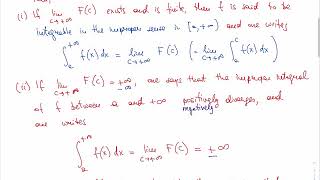 (i) If lim F(c) exists and is finite, then f is said to be
c→+∞
integrable in the improper sense in [a,+∞) and one writes
∫_a^{+∞} f(x) dx = lim_{c→+∞} F(c) (= lim_{c→+∞} ∫_a^c f(x) dx)
(ii) If lim_{c→+∞} F(c) = ±∞ one says that the improper integral
of f between a and +∞ positively diverges, and
negatively
one writes
∫_a^{+∞} f(x) dx = lim_{c→+∞} F(c) = ±∞